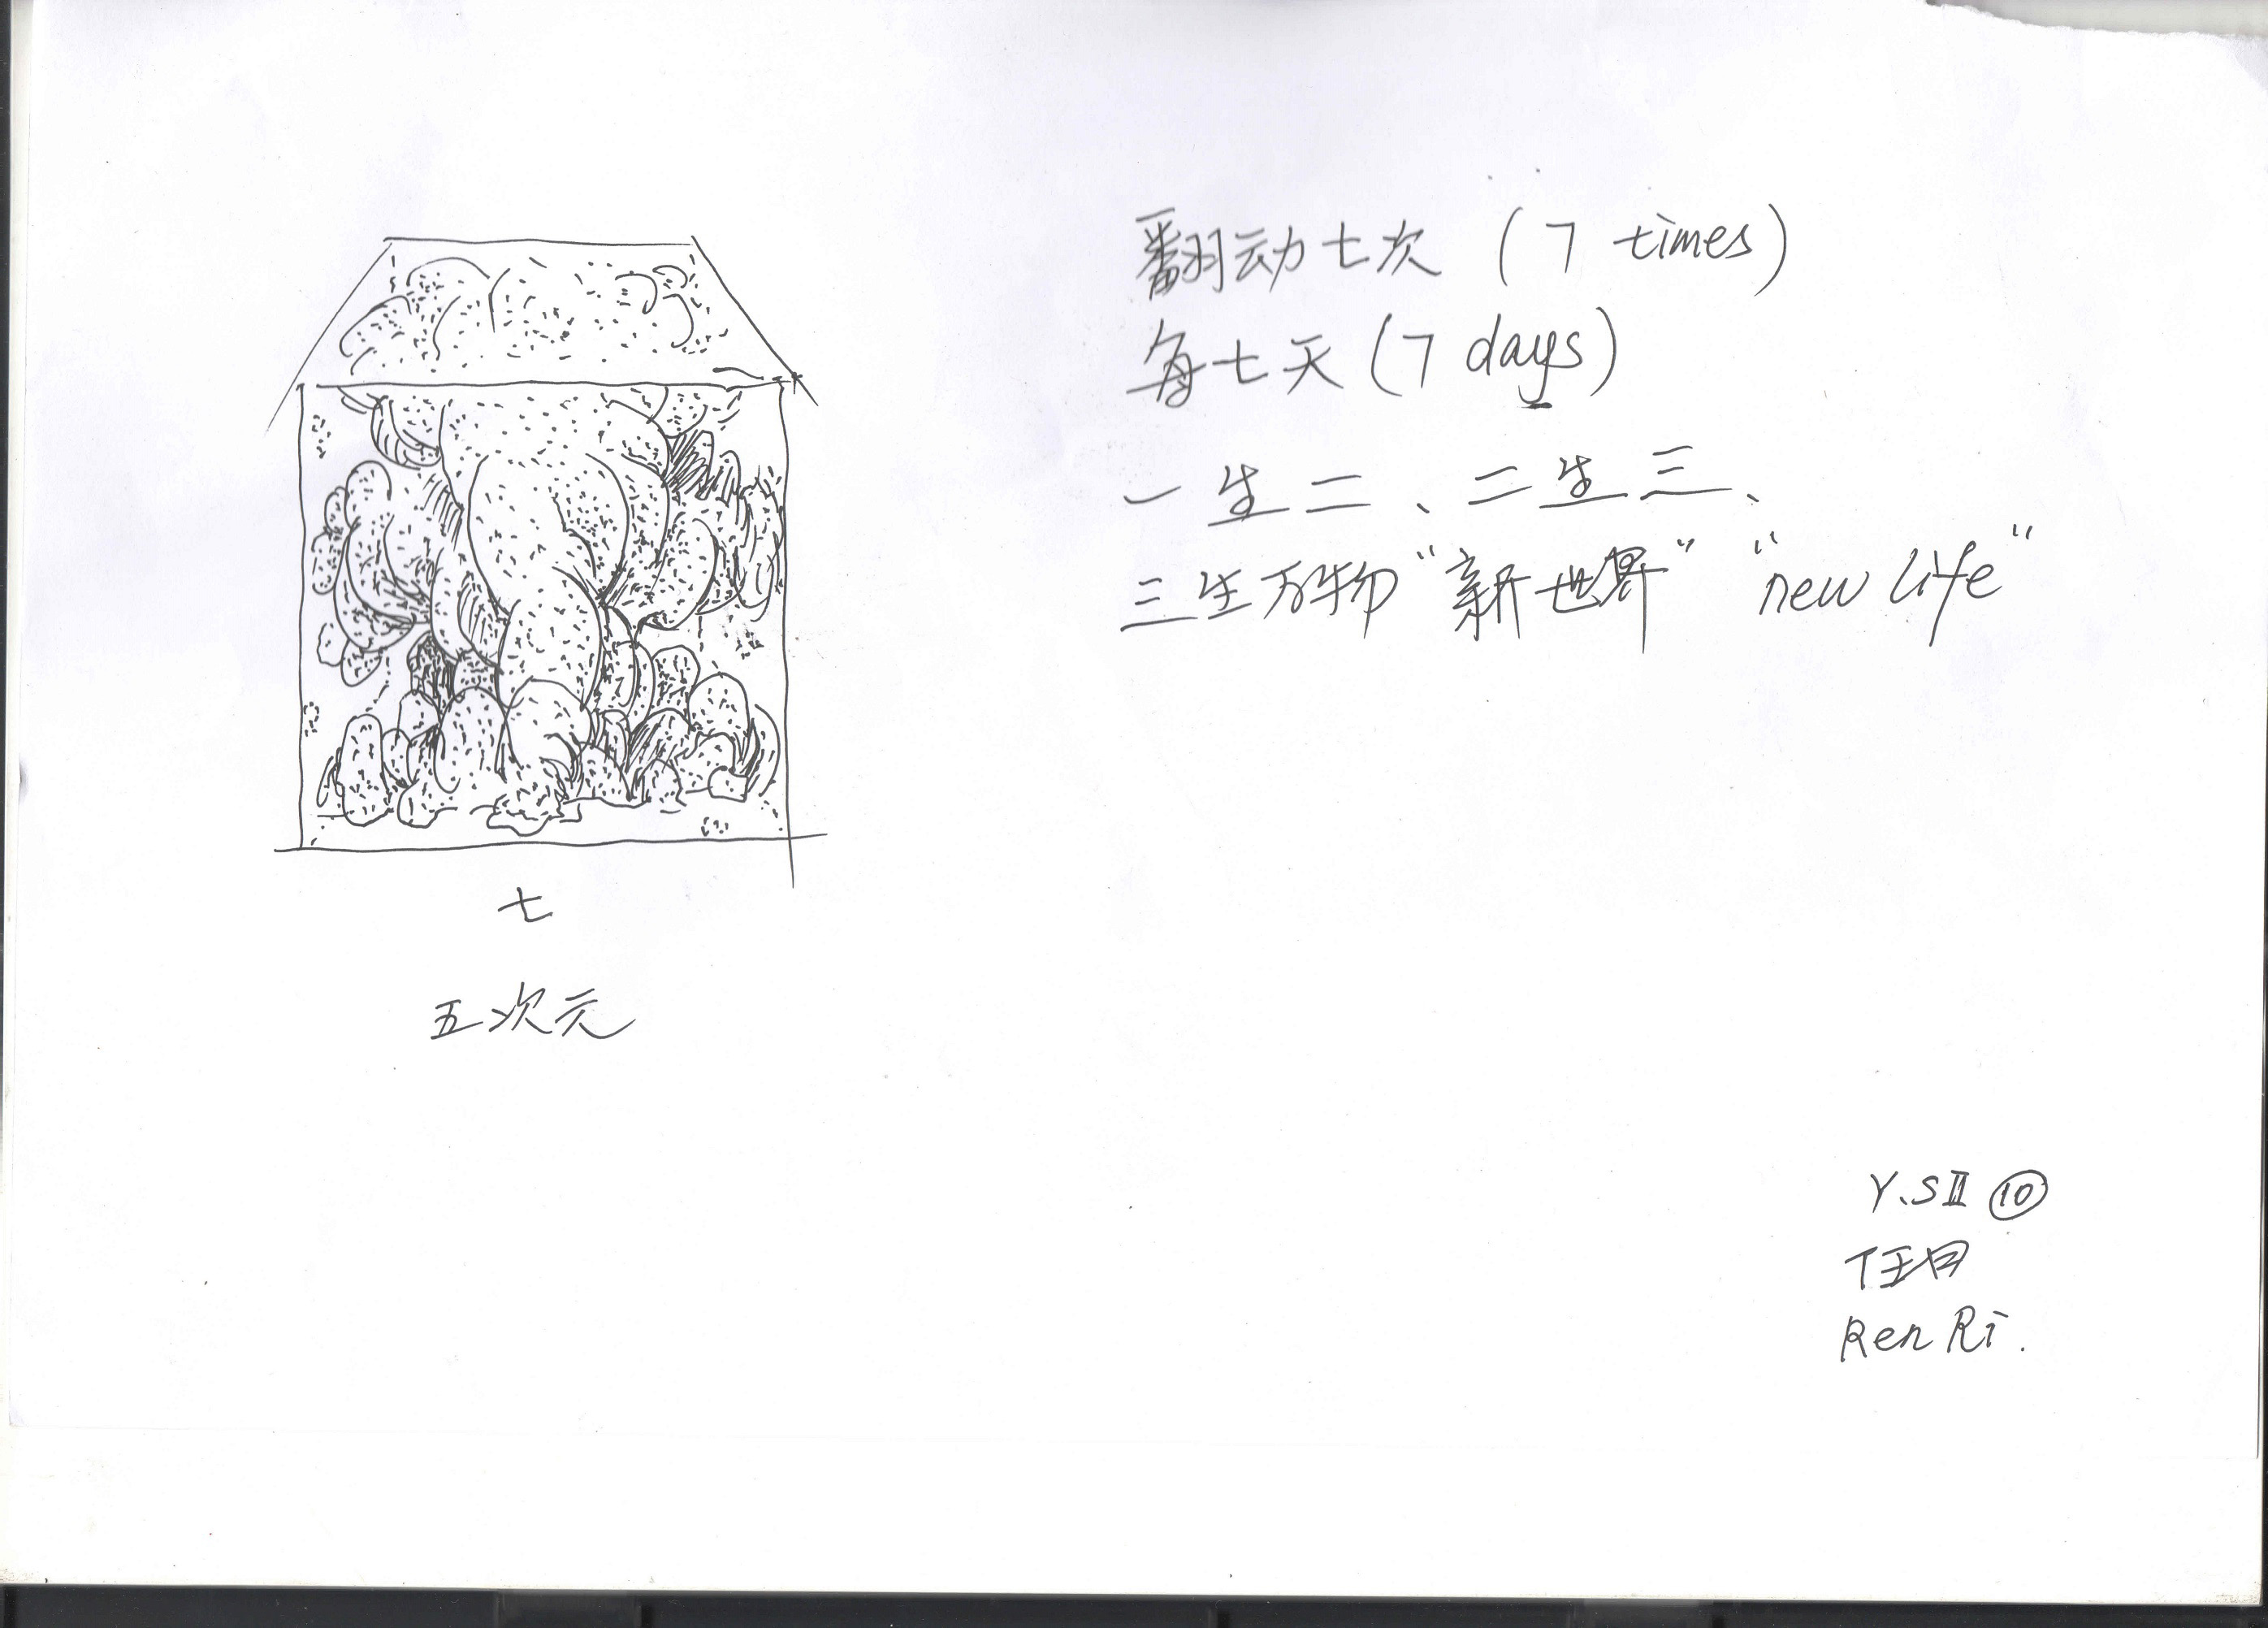 翻动七次 (7 times)
每七天 (7 days)
一生二、二生三、
三生万物 "新世界" "new life"
七
五次元
Y.SⅡ ⑩
任日
Ren Ri.